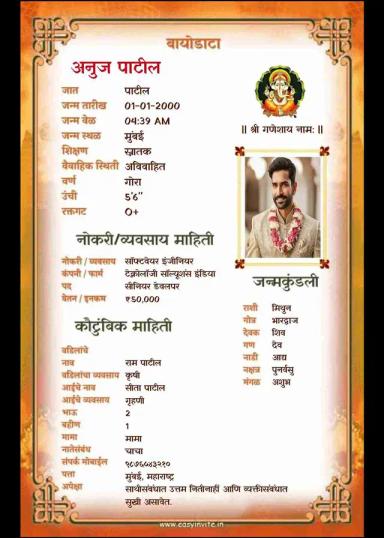 बायोडाटा
अनुज पाटील
जात पाटील
जन्म तारीख 01-01-2000
जन्म वेळ 04:39 AM
जन्म स्थळ मुंबई
शिक्षण स्नातक
वैवाहिक स्थिती अविवाहित
वर्ण गोरा
उंची 5'6"
रक्तगट O+
|| श्री गणेशाय नामः ||
नोकरी/व्यवसाय माहिती
नोकरी / व्यवसाय सॉफ्टवेयर इंजीनियर
कंपनी / फार्म टेक्नोलॉजी सॉल्यूशंस इंडिया
पद सीनियर डेवलपर
वेतन / इनकम ₹60,000
जन्मकुंडली
राशी मिथुन
गोत्र भारद्वाज
देवक शिव
गण देव
नाडी आद्य
नक्षत्र पुनर्वसु
मंगळ अशुभ
कौटुंबिक माहिती
वडिलांचे
नाव राम पाटील
वडिलांचा व्यवसाय कृषी
आईचे नाव सीता पाटील
आईचे व्यवसाय गृहणी
भाऊ 2
बहीण 1
मामा मामा
नातेसंबंध चाचा
संपर्क मोबाईल ९८७६५४३२१०
पत्ता मुंबई, महाराष्ट्र
अपेक्षा साथीसंबंधात उत्तम नितीनाहीं आणि व्यक्तीसंबंधात
सुखी असावेत.
www.easyinvite.in